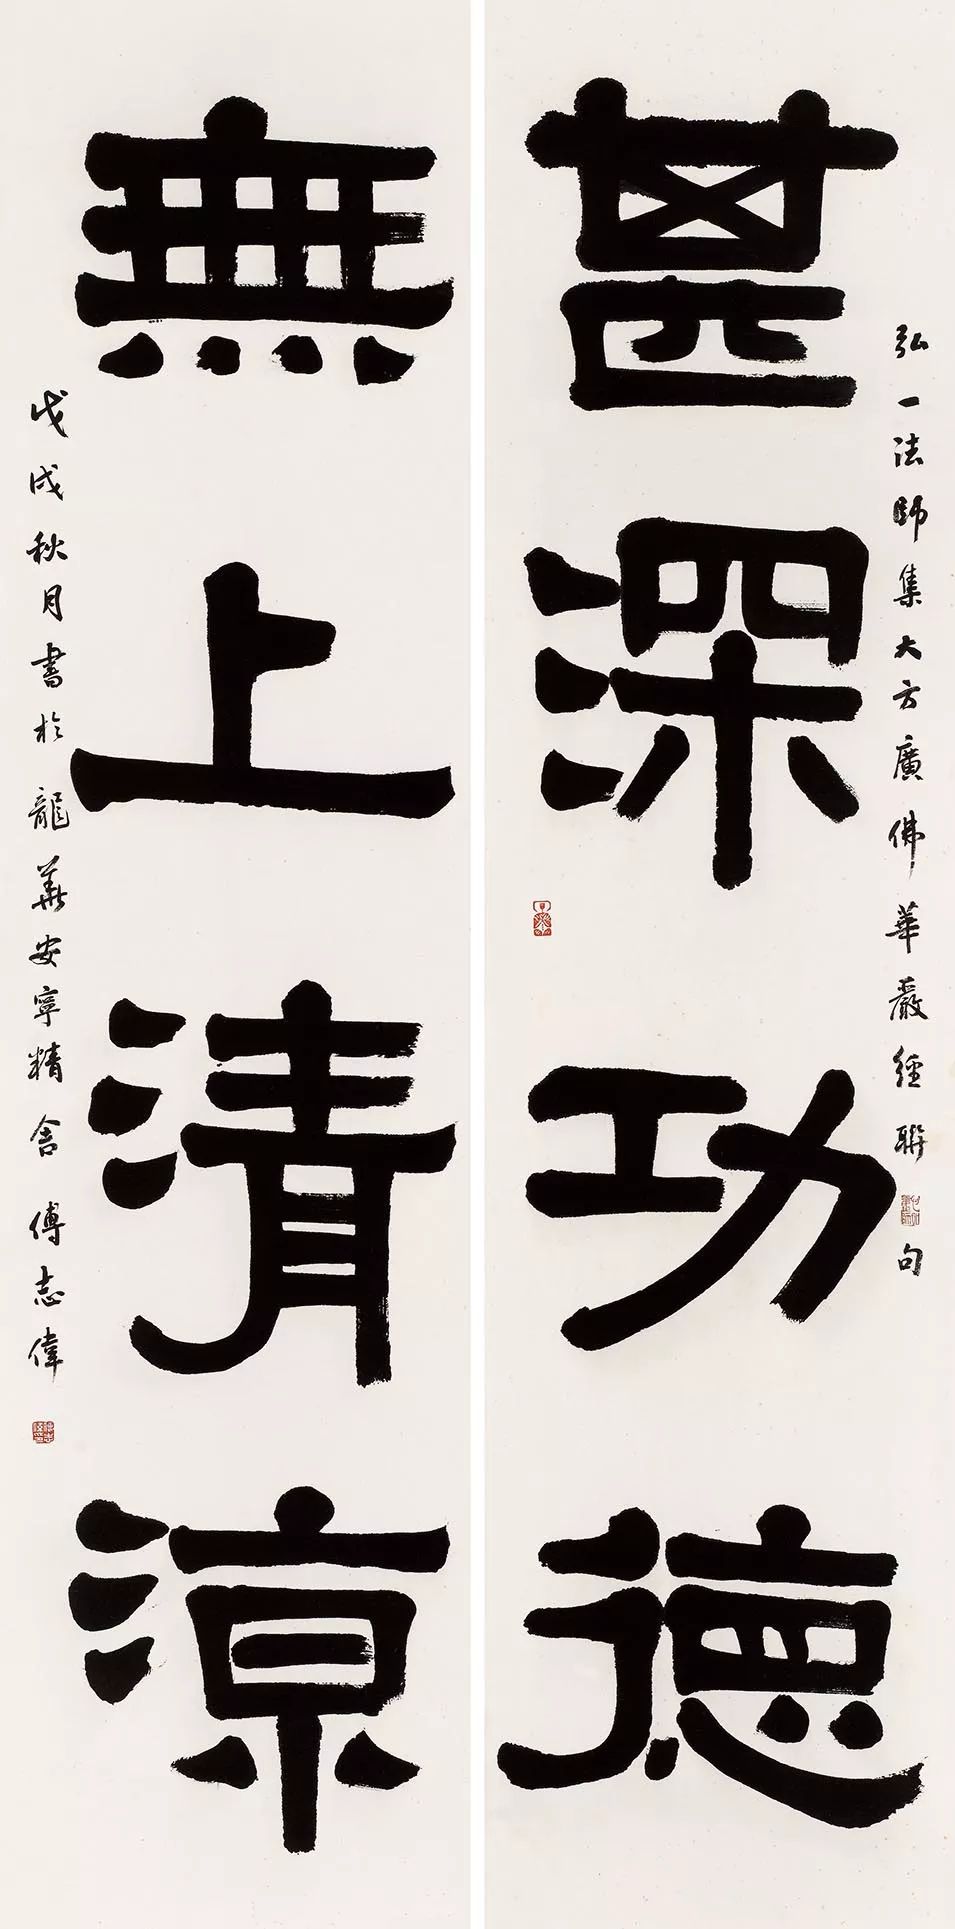 甚深功德
弘一法師集大方廣佛華嚴經聯句
無上清涼
戊戌秋月書於龍華安寧精舍傅志偉